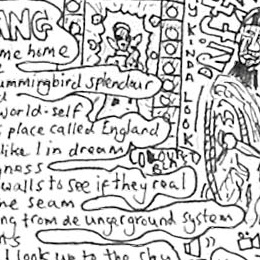 ANG
me home
ummingbird splendour
world-self
place called England
like I in dream
COLOURED
yness
walls to see if they real
ne seam
ng from de ungerground system
I look up to the sky
KINDA LOOK